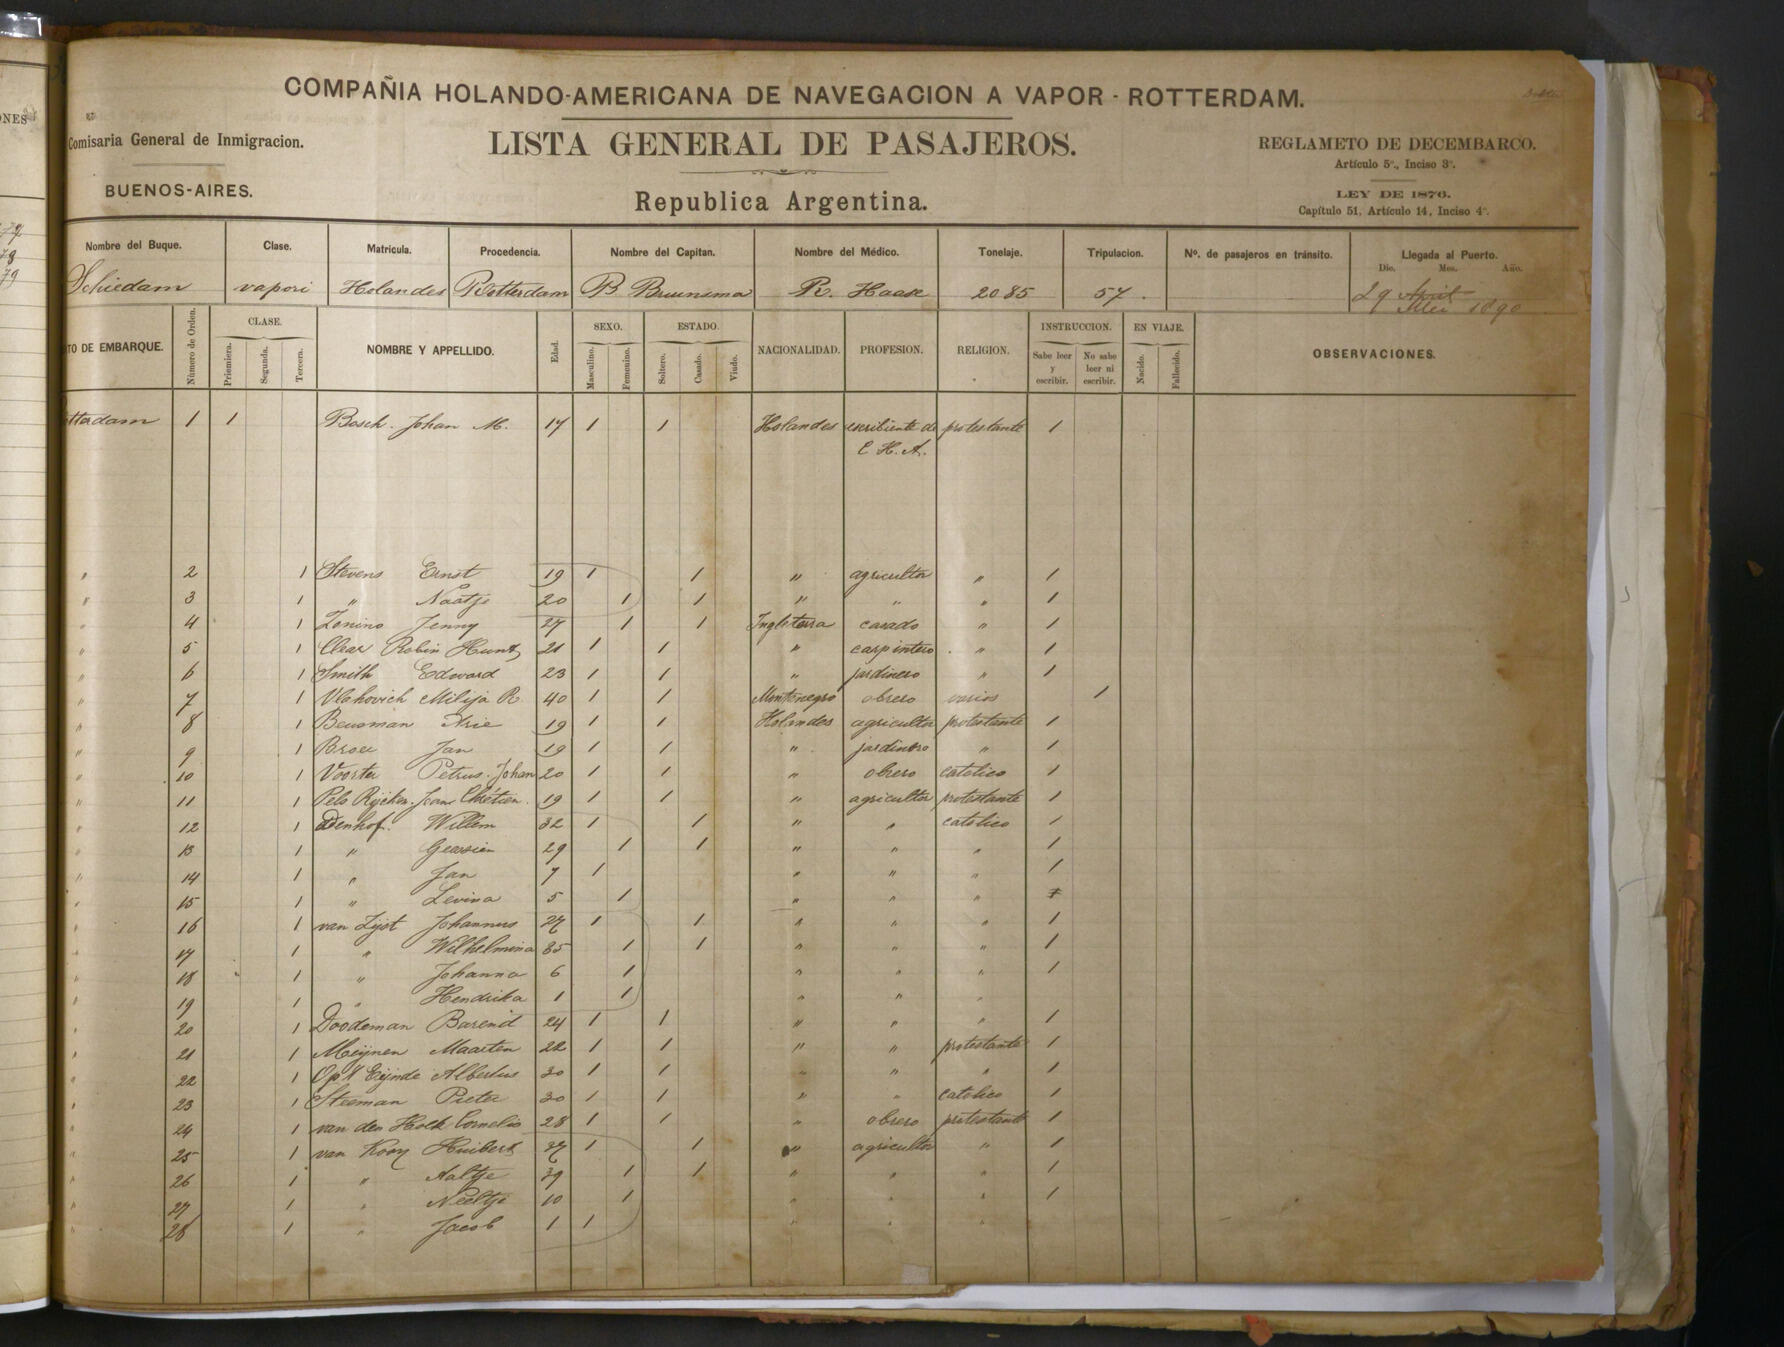 COMPAÑIA HOLANDO-AMERICANA DE NAVEGACION A VAPOR - ROTTERDAM.
Comisaria General de Inmigracion.
BUENOS-AIRES.
LISTA GENERAL DE PASAJEROS.
Republica Argentina.
REGLAMETO DE DECEMBARCO.
Artículo 5º., Inciso 3º.
LEY DE 1876.
Capítulo 51, Artículo 14, Inciso 4º.
Nombre del Buque. Clase. Matricula. Procedencia. Nombre del Capitan. Nombre del Médico. Tonelaje. Tripulacion. Nº. de pasajeros en tránsito. Llegada al Puerto.
Dic. Mes. Año.
Schiedam vapori Holandes Rotterdam B Bruinsma R. Haase 2085 57. 29 April Mei 1890
TO DE EMBARQUE. Número de Orden. CLASE. Priemiera. Segunda. Tercera. NOMBRE Y APPELLIDO. Edad. SEXO. Masculino. Femenino. ESTADO. Soltero. Casado. Viudo. NACIONALIDAD. PROFESION. RELIGION. INSTRUCCION. Sabe leer y escribir. No sabe leer ni escribir. EN VIAJE. Nacido. Fallecido. OBSERVACIONES.
tterdam 1 1 Bosch. Johan M. 17 1 1 Holandes escribiente de protestante 1
C H. A.
" 2 1 Stevens Ernst 19 1 1 " agricultor " 1
" 3 1 " Naatje 20 1 1 " " " 1
" 4 1 Zonino Jenny 27 1 1 Ingleterra casado " 1
" 5 1 Clear Robin Hunt 21 1 1 " carpintero " 1
" 6 1 Smith Edward 23 1 1 " jardinero " 1
" 7 1 Vlahovich Milija R. 40 1 1 Montenegro obrero varios 1
" 8 1 Beusman Arie 19 1 1 Holandes agricultor protestante 1
" 9 1 Broer Jan 19 1 1 " jardinero " 1
" 10 1 Voorter Petrus. Johan 20 1 1 " obrero catolico 1
" 11 1 Pels Rijcken. Jean Chrétien. 19 1 1 " agricultor protestante 1
" 12 1 Odenhof. Willem 32 1 1 " " catolico 1
" 13 1 " Geassien 29 1 1 " " " 1
" 14 1 " Jan 7 1 " " " 1
" 15 1 " Levina 5 1 " " "
" 16 1 van Zijst Johannus 27 1 1 " " " 1
" 17 1 " Wilhelmina 35 1 1 " " " 1
" 18 1 " Johanna 6 1 " " " 1
" 19 1 " Hendrika 1 1 " " "
" 20 1 Doodeman Barend 24 1 1 " " " 1
" 21 1 Meijnen Maarten 22 1 1 " " protestante 1
" 22 1 Op 't Eijnde Albertus 30 1 1 " " " 1
" 23 1 Steeman Pieter 30 1 1 " " catolico 1
" 24 1 van den Hoek Cornelis 28 1 1 " obrero protestante 1
" 25 1 van Kooy Huibert 37 1 1 " agricultor " 1
" 26 1 " Aaltje 39 1 1 " " " 1
" 27 1 " Neeltje 10 1 " " " 1
" 28 1 " Jacob 1 1 " " "